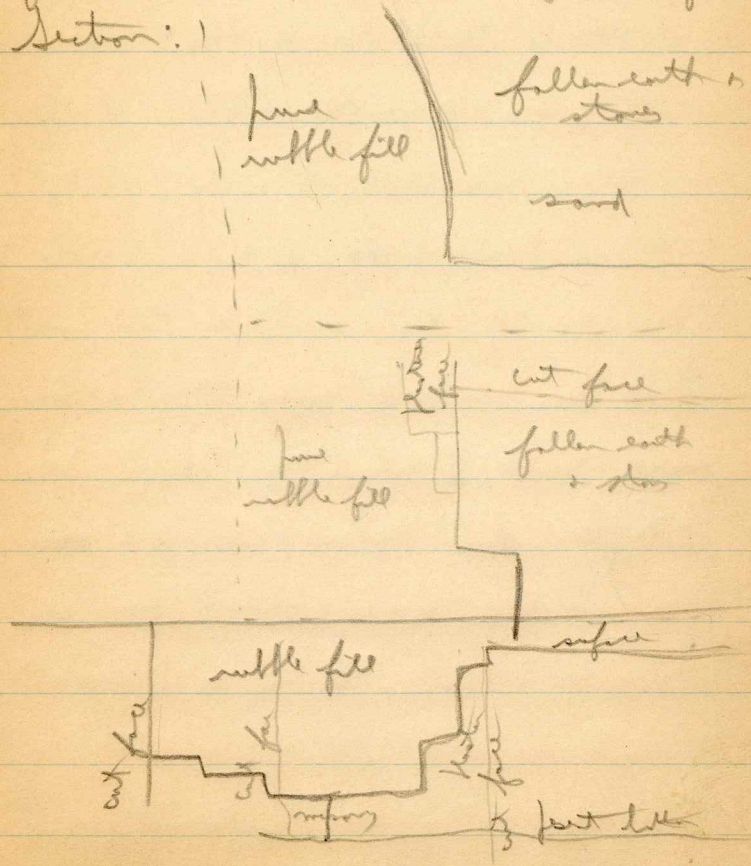 Section:
pure
rubble fill
fallen earth &
stones
sand
cut face
pure
rubble fill
fallen earth
& stones
rubble fill
surface
cut face
cut face
face
masonry